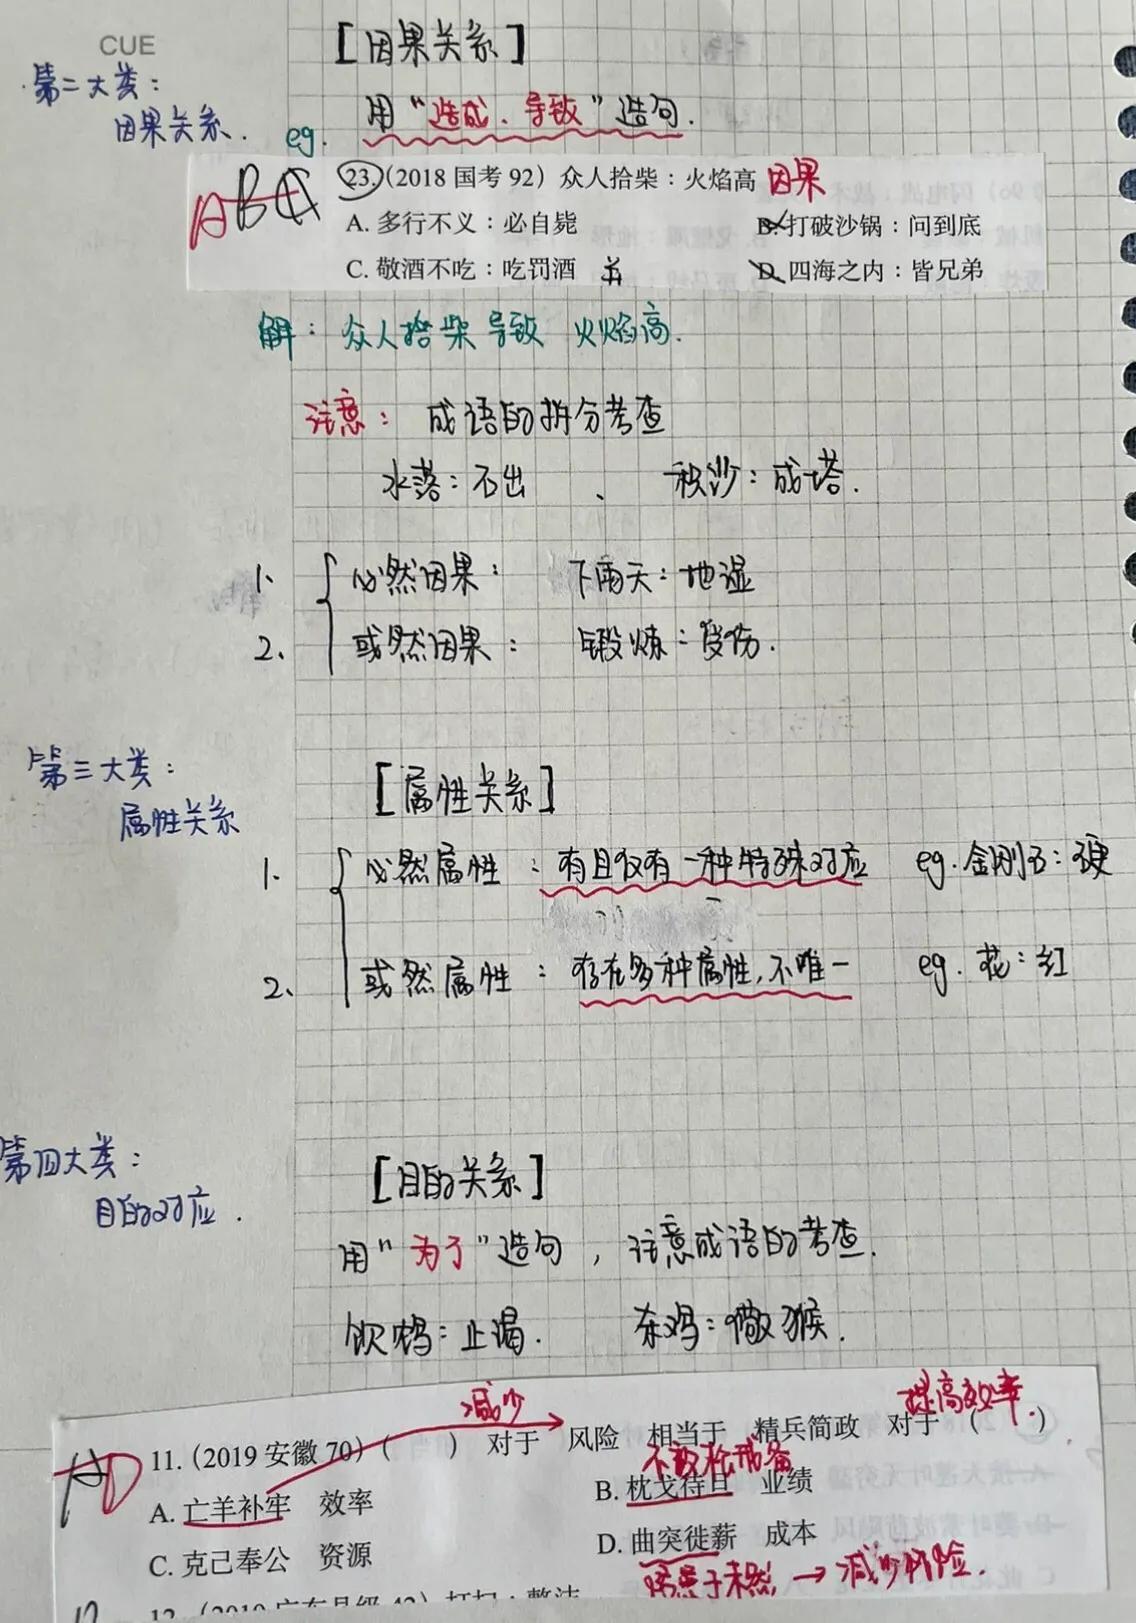 CUE
[因果关系]
第二大类：
因果关系.
用“造成、导致”造句.
eg.
ABC 23.(2018 国考 92) 众人拾柴：火焰高 因果
A. 多行不义：必自毙 B. 打破沙锅：问到底
C. 敬酒不吃：吃罚酒 并 D. 四海之内：皆兄弟
解：众人拾柴 导致 火焰高.
注意：成语的拆分考查
水落：石出 、 积沙：成塔.
1、必然因果： 下雨天：地湿
2、或然因果： 锻炼：受伤.
第三大类：
属性关系
[属性关系]
1、必然属性：有且仅有一种特殊对应 eg. 金刚石：硬
2、或然属性：存在多种属性,不唯一 eg. 花：红
第四大类：
目的对应.
[目的关系]
用“为了”造句，注意成语的考查.
饮鸩：止渴. 杀鸡：儆猴.
减少 提高效率.
AD 11. (2019 安徽 70) ( ) 对于 风险 相当于 精兵简政 对于 ( )
不敢松戒备
A. 亡羊补牢 效率 B. 枕戈待旦 业绩
C. 克己奉公 资源 D. 曲突徙薪 成本
防患于未然 → 减少风险.
12. (2019 广东县级 42) 打扫：整洁